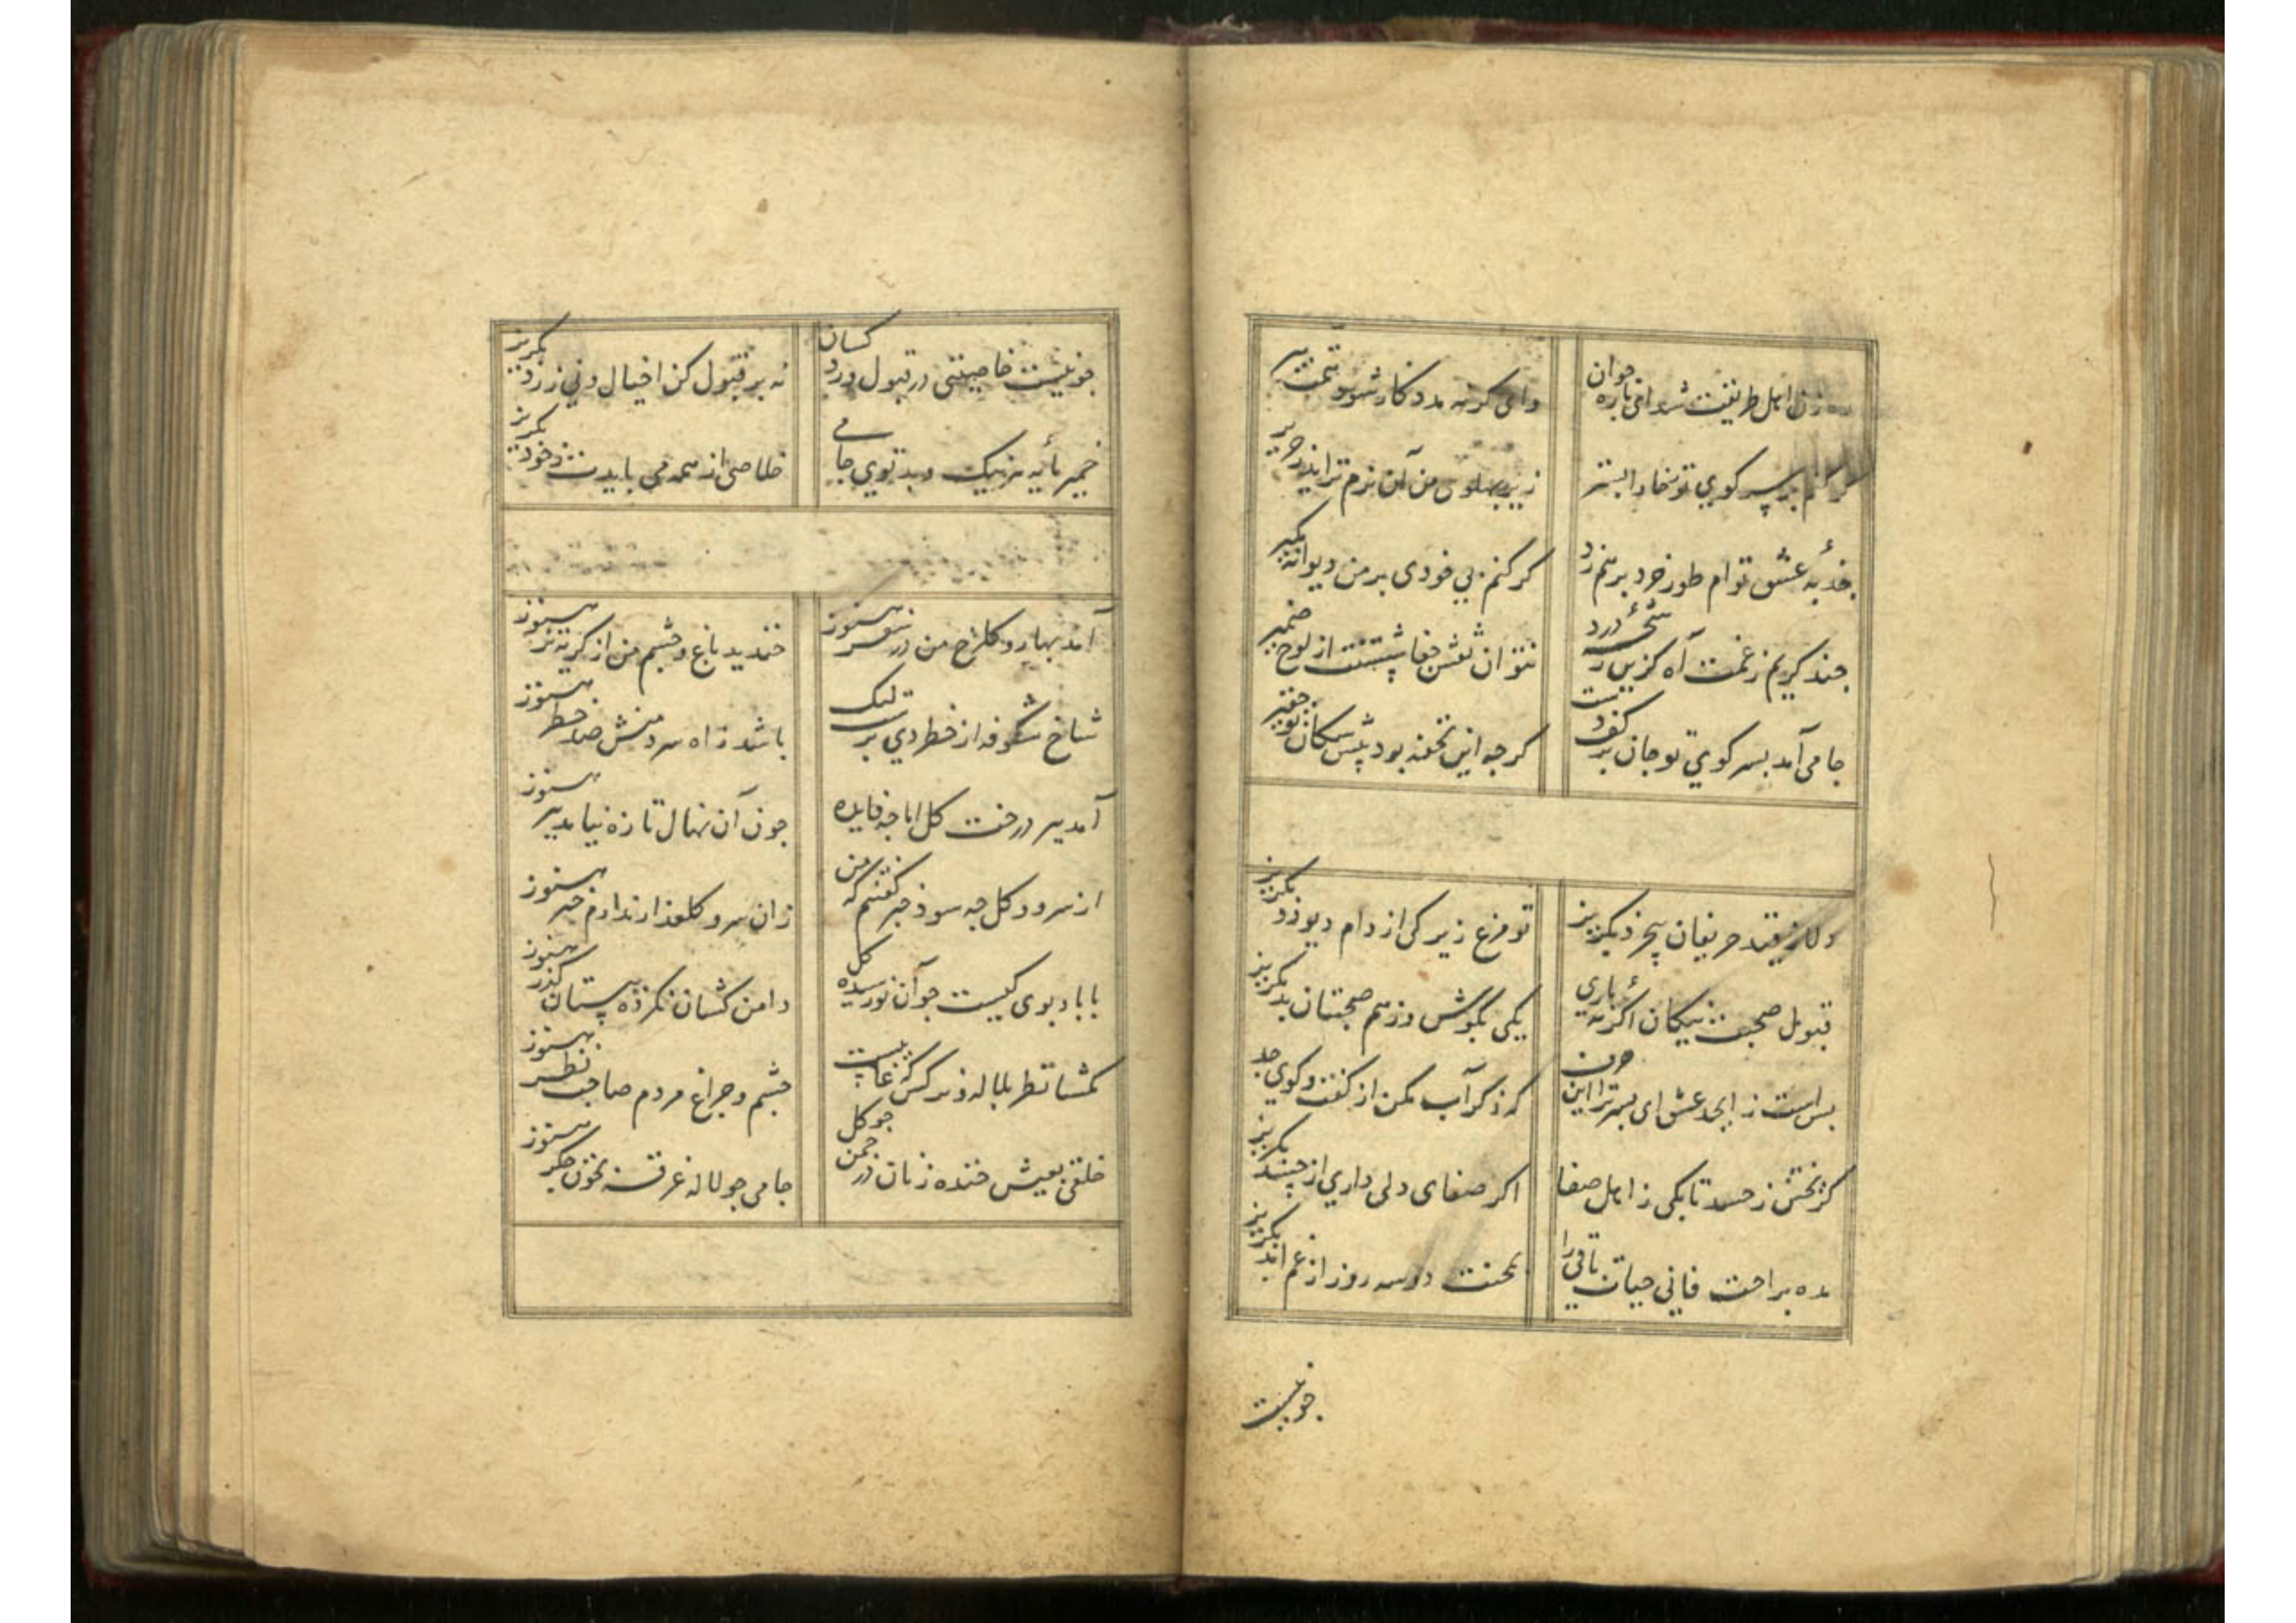 ره زن اهل طریقت شد این تازه جوان
وای کر نه مدد کار شود همت پیر
کر کنم بر سر کوی تو ز خارا بستر
زیر پهلوی من آن نرم تر آید ز حریر
جذبهٔ عشق توام طور خرد برهم زد
کر کنم بی خودی بر من دیوانه مکیر
چند کریم ز غمت آه کزین
نتوان نقش جفا شستنت از لوح ضمیر
جامی آمد بسر کوی تو جان بر کف دست
کرچه این تحفه بود پیش سکان تو حقیر
دلا ز قید حریفان بی خرد بکریز
تو مرغ زیرکی از دام دیو و دد بکریز
قبول صحبت نیکان اکر نهٔ باری
یکی بکوش و ز هم صحبتان بد بکریز
بس است ز ابجد عشق ای پسر ترا این حرف
که ذکر آب مکن از کفت و کوی جد
کز بخش ز حسد تا بکی ز اهل صفا
اکر صفای دلی داری از حسد بکریز
مده براحت فانی حیات باقی را
بمحنت دو سه روز از غم ابد بکریز
چو نیست
چو نیست خاصیتی در قبول و رد کسان
نه بر قبول کن اقبال و نی ز رد بکریز
خمیر مایه هر نیک و بد تویی جامی
خلاصی از همه می بایدت ز خود بکریز
آمد بهار و کلرخ من در سفر هنوز
خندید باغ و چشم من از کریه تر هنوز
شاخ شکوفه از خطر دی برست لیک
باشد ز آه سرد منش صد خطر هنوز
آمد ببر درخت کل اما چه فایده
چون آن نهال تازه نیامد ببر هنوز
از سرو و کل چه سود خبر کفتنم که من
زان سرو کلعذار ندارم خبر هنوز
با باد بوی کیست چو آن نو رسیده کل
دامن کشان نکرده به بستان کذر هنوز
مکشا نظر بلاله و نرکس که غایبست
چشم و چراغ مردم صاحب نظر هنوز
خلقی بعیش خنده زنان در چمن چو کل
جامی چو لاله غرقه بخون جکر هنوز